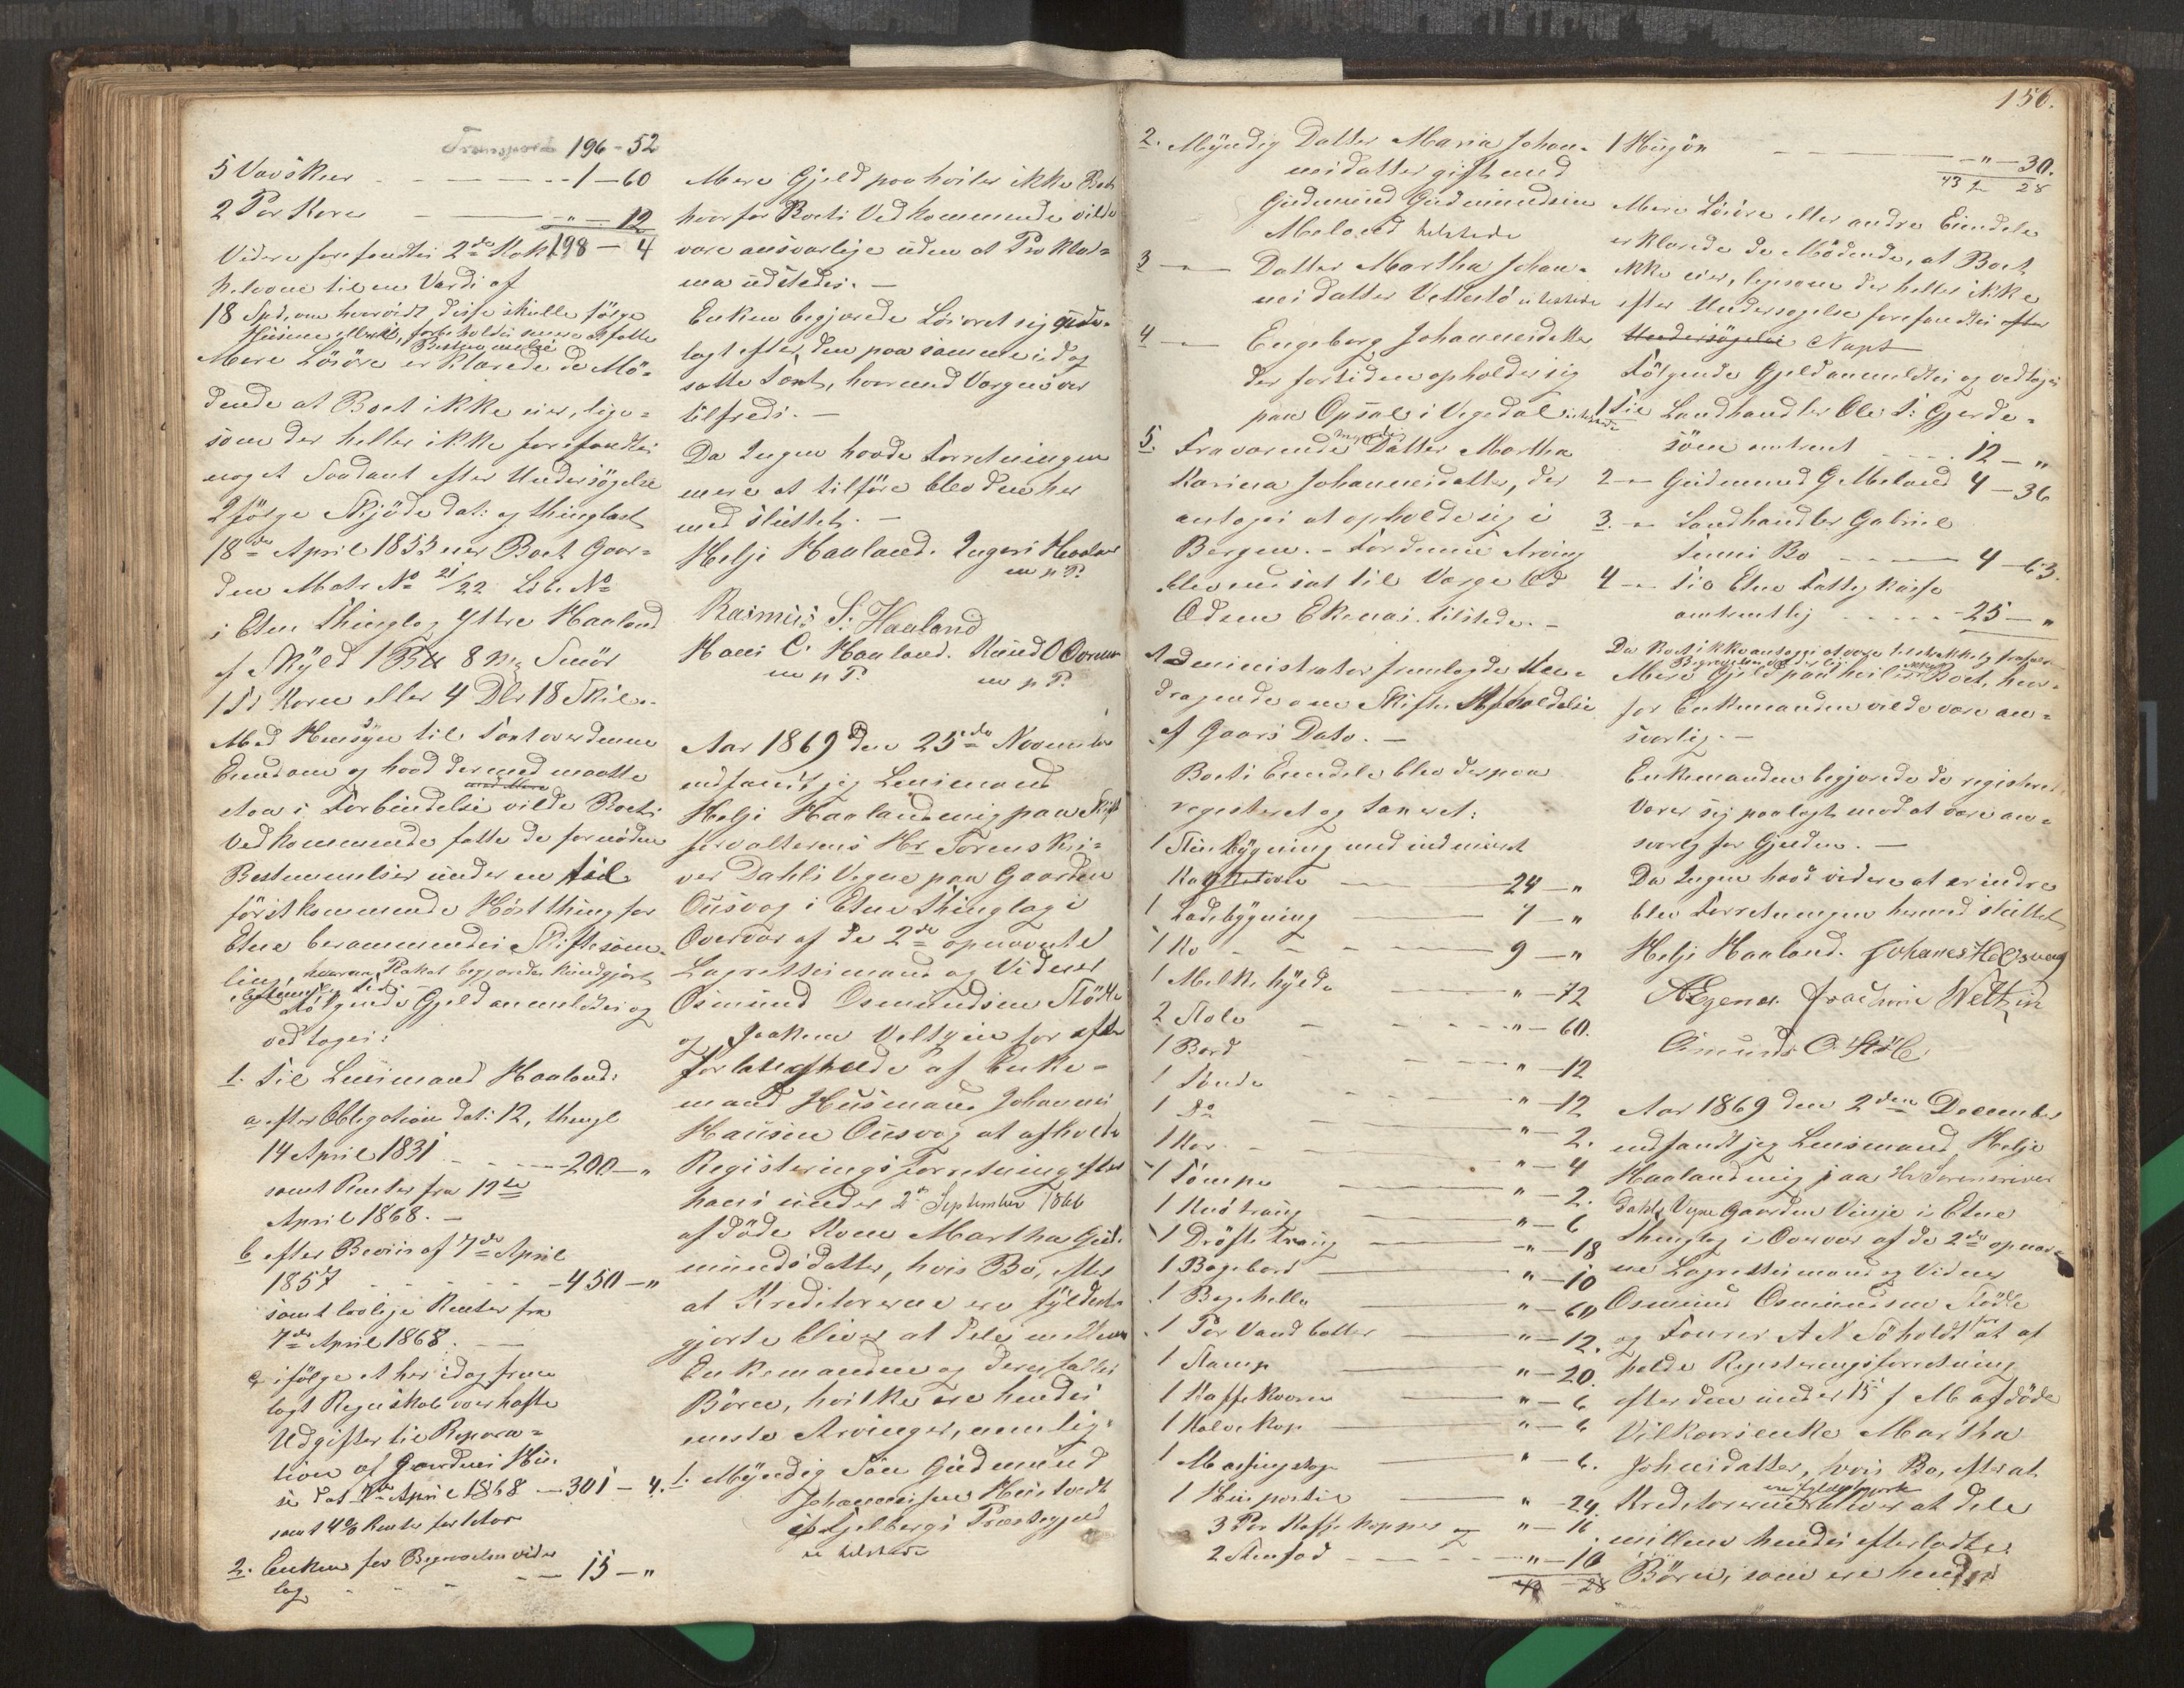 Transport 196 - 52
5 Vavskeer - 1 - 60
2 Par Karer - " - 12
198 - 4
Videre forefandtes 2de Kak-
helovne til en Værdi af
18 Spd, om hvorvidt disse skulle følge
Husene eller ei, forbeholdes senere at fatte
Bestemmelse
Mere Løsøre erklærede de Mø-
dende at Boet ikke eier, lige-
som der heller ikke forefandtes
noget Saadant efter Undersøgelse
Ifølge Skjøde dat: og thinglæst
18de April 1853 eier Boet Gaar-
den Matr No 21/22 Løbe No
i Etne Thinglag Ytre Haaland
af Skyld 8 Smør
Korn eller 4 Dlr 18 Skil.
Med Hensyn til Taxt over denne
Eiendom og hvad dermed maatte
staa i Forbindelse vilde Boets
Vedkommende fatte de fornødne
Bestemmelser under en til
førstkommende Høstthing for
Etne berammendes Skiftesam-
ling, hvorom Plakat begjæredes kundgjort
Følgende Gjeld anmeldtes og
vedtoges:
1. Til Lensmand Haaland:
a efter Obligation dat: 12, thingl
14 April 1831 - 200 - "
samt Renter fra 12te
April 1868. -
b efter Beviis af 7de April
1857 - 450 - "
samt lovlige Renter fra
7de April 1868. -
c, ifølge et her idag frem-
lagt Regnskab over hafte
Udgifter til Repara-
tion af Gaardens Hu-
se dat 7de April 1868 - 301 - 4.
samt 4% Renter
2. Enken for Begravelsen videre
lag - 15 - "
Mere Gjeld paahviler ikke Boet
hvorfor Boets Vedkommende vilde
være ansvarlige uden at Prokla-
ma udstedes. -
Enken begjærede Løsøret sig udi-
lagt efter den paa samme idag
satte Taxt, hvormed Vergen var
tilfreds. -
Da Ingen havde Forretningen
mere at tilføre blev den her
med sluttet. -
Helje Haaland. Inger Haaland
m p P.
Rasmus S: Haaland
Hans C. Haaland. Knud O
m p P. m p P.
Aar 1869 den 25de November
indfandt jeg Lensmand
Helje Haaland mig paa Skifte
forvalterens Hr. Sorenskri-
ver Dahls Vegne paa Gaarden
Ousvag i Etne Thinglag i
Overvær af de 2de opnævnte
Lagrettesmænd og Vidner
Osmund Osmundsen Stødle
og Joakim Veltzin for efter
Forlangende af Enke-
mand Husmand Johannes
Hansen Ousvag at afholde
Registreringsforretning efter
hans under 2den September 1866
afdøde Kone Martha Gud-
mundsdatter, hvis Bo, efter
at Kreditorerne ere fyldest-
gjorte bliver at dele mellem
Enkemanden og deres fælles
Børn, hvilke ere hendes
eneste Arvinger, nemlig:
1. Myndig Søn Gudmund
Johannessen
i Fjelbergs Præstegjeld
ei tilstede
156.
2. Myndig Datter Maria Johan-
nesdatter gift med
Gudmund Gudmundsen
Meland tilstede
3 - Datter Martha Johan-
nesdatter ei tilstede
4 - Engeborg Johannesdatter
der for tiden opholder sig
paa Opsal i Vegedal ei tilstede
5. Fraværende myndig Datter Martha
Karina Johannesdatter, der
antages at opholde sig i
Bergen. - For denne Arving
blev indsat til Værge Od
Odsen Ekenæs. tilstede. -
Administrator fremlagde An-
dragende om Skiftes Afholdelse
af Gaars Dato. -
Boets Eiendele blev derpaa
registeret og taxeret:
1 Stuebygning med indmuret
Kakkelovn - 24 - "
1 Ladebygning - 7 - "
1 Ko - 9 - "
1 Melkehylde - " - 72
2 Stole - " - 60.
1 Bord - " - 12
1 Tønde - " - 12
1 Do - " - 2.
1 Kar - " - 4
1 Tømpe - " - 2.
1 Knotraug - " - 6
1 Drøfte Traug - " - 18
1 Bagebord - " - 10
1 Bagehelle - " - 60
1 Par Vandbøtter - " - 12.
1 Stamp - " - 20.
1 Kaffekværn - " - 6
1 Halvekop - " - 6
1 Messingstage - " - 6.
1 Hespestie - " - 24.
3 Par Kaffekopper og - " - 16
2 Steenfad - " - 10
42 - 28
1 Husjøn - " - 30.
43 - 28
Mere Løsøre eller andre Eiendele
erklærede de Mødende, at Boet
ikke eier, ligesom der heller ikke
efter Undersøgelse forefandtes efter
Undersøgelse Noget
Følgende Gjeld anmeldtes og vedtoges
1 Til Landhandler Ole T: Gjerde-
søm omtrent - 12 - "
2 - Gudmund G Meland 4 - 36
3. - Landhandler Gabriel
Bo - 4 - 63.
4 - Til Etne Fattigkasse
omtrentlig - 25 - "
Da Boet ikke antages at være tilstrækkelig
Mere Gjeld paahviler ikke Boet, hvor-
for Enkemanden vilde være an-
svarlig. -
Enkemanden begjærede de registrerede
Varer sig paalagt mod at være an-
svarlig for Gjelden. -
Da Ingen havde videre at erindre
blev Forretningen hermed sluttet
Helje Haaland. Johanes H Ousvaag
O. Ekenæs. Joachim Weltzin
Osmund O. Stødle
Aar 1869 den 2den December
indfandt jeg Lensmand Helje
Haaland mig paa Hr Sorenskriver
Dahls Vegne Gaarden Vinje i Etne
Thinglag i Overvær af de 2de opnævn-
te Lagrettesmænd og Vidner
Osmund Osmundsen Stødle
og Fourer A N Søholdt for at af
holde Registeringsforretning
efter den under 15 f M afdøde
Vilkaarsenke Martha
Johnsdatter, hvis Bo, efter at
Kreditorerne ere fyldestgjorte bliver at dele
mellem hendes efterladte
Børn, som ere hendes